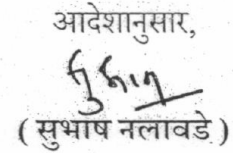 आदेशानुसार,
( सुभाष नलावडे )